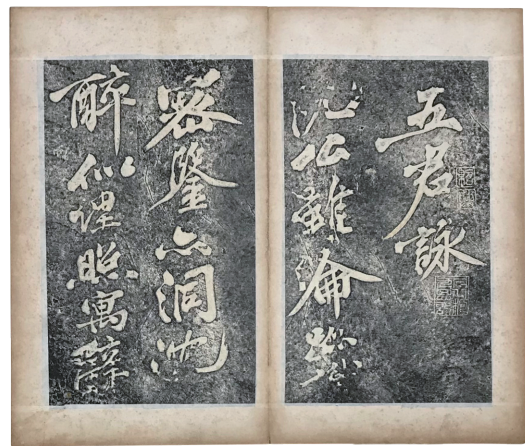 五君詠
阮公雖淪跡
密鑒亦洞沈
醉似埋照寓辭